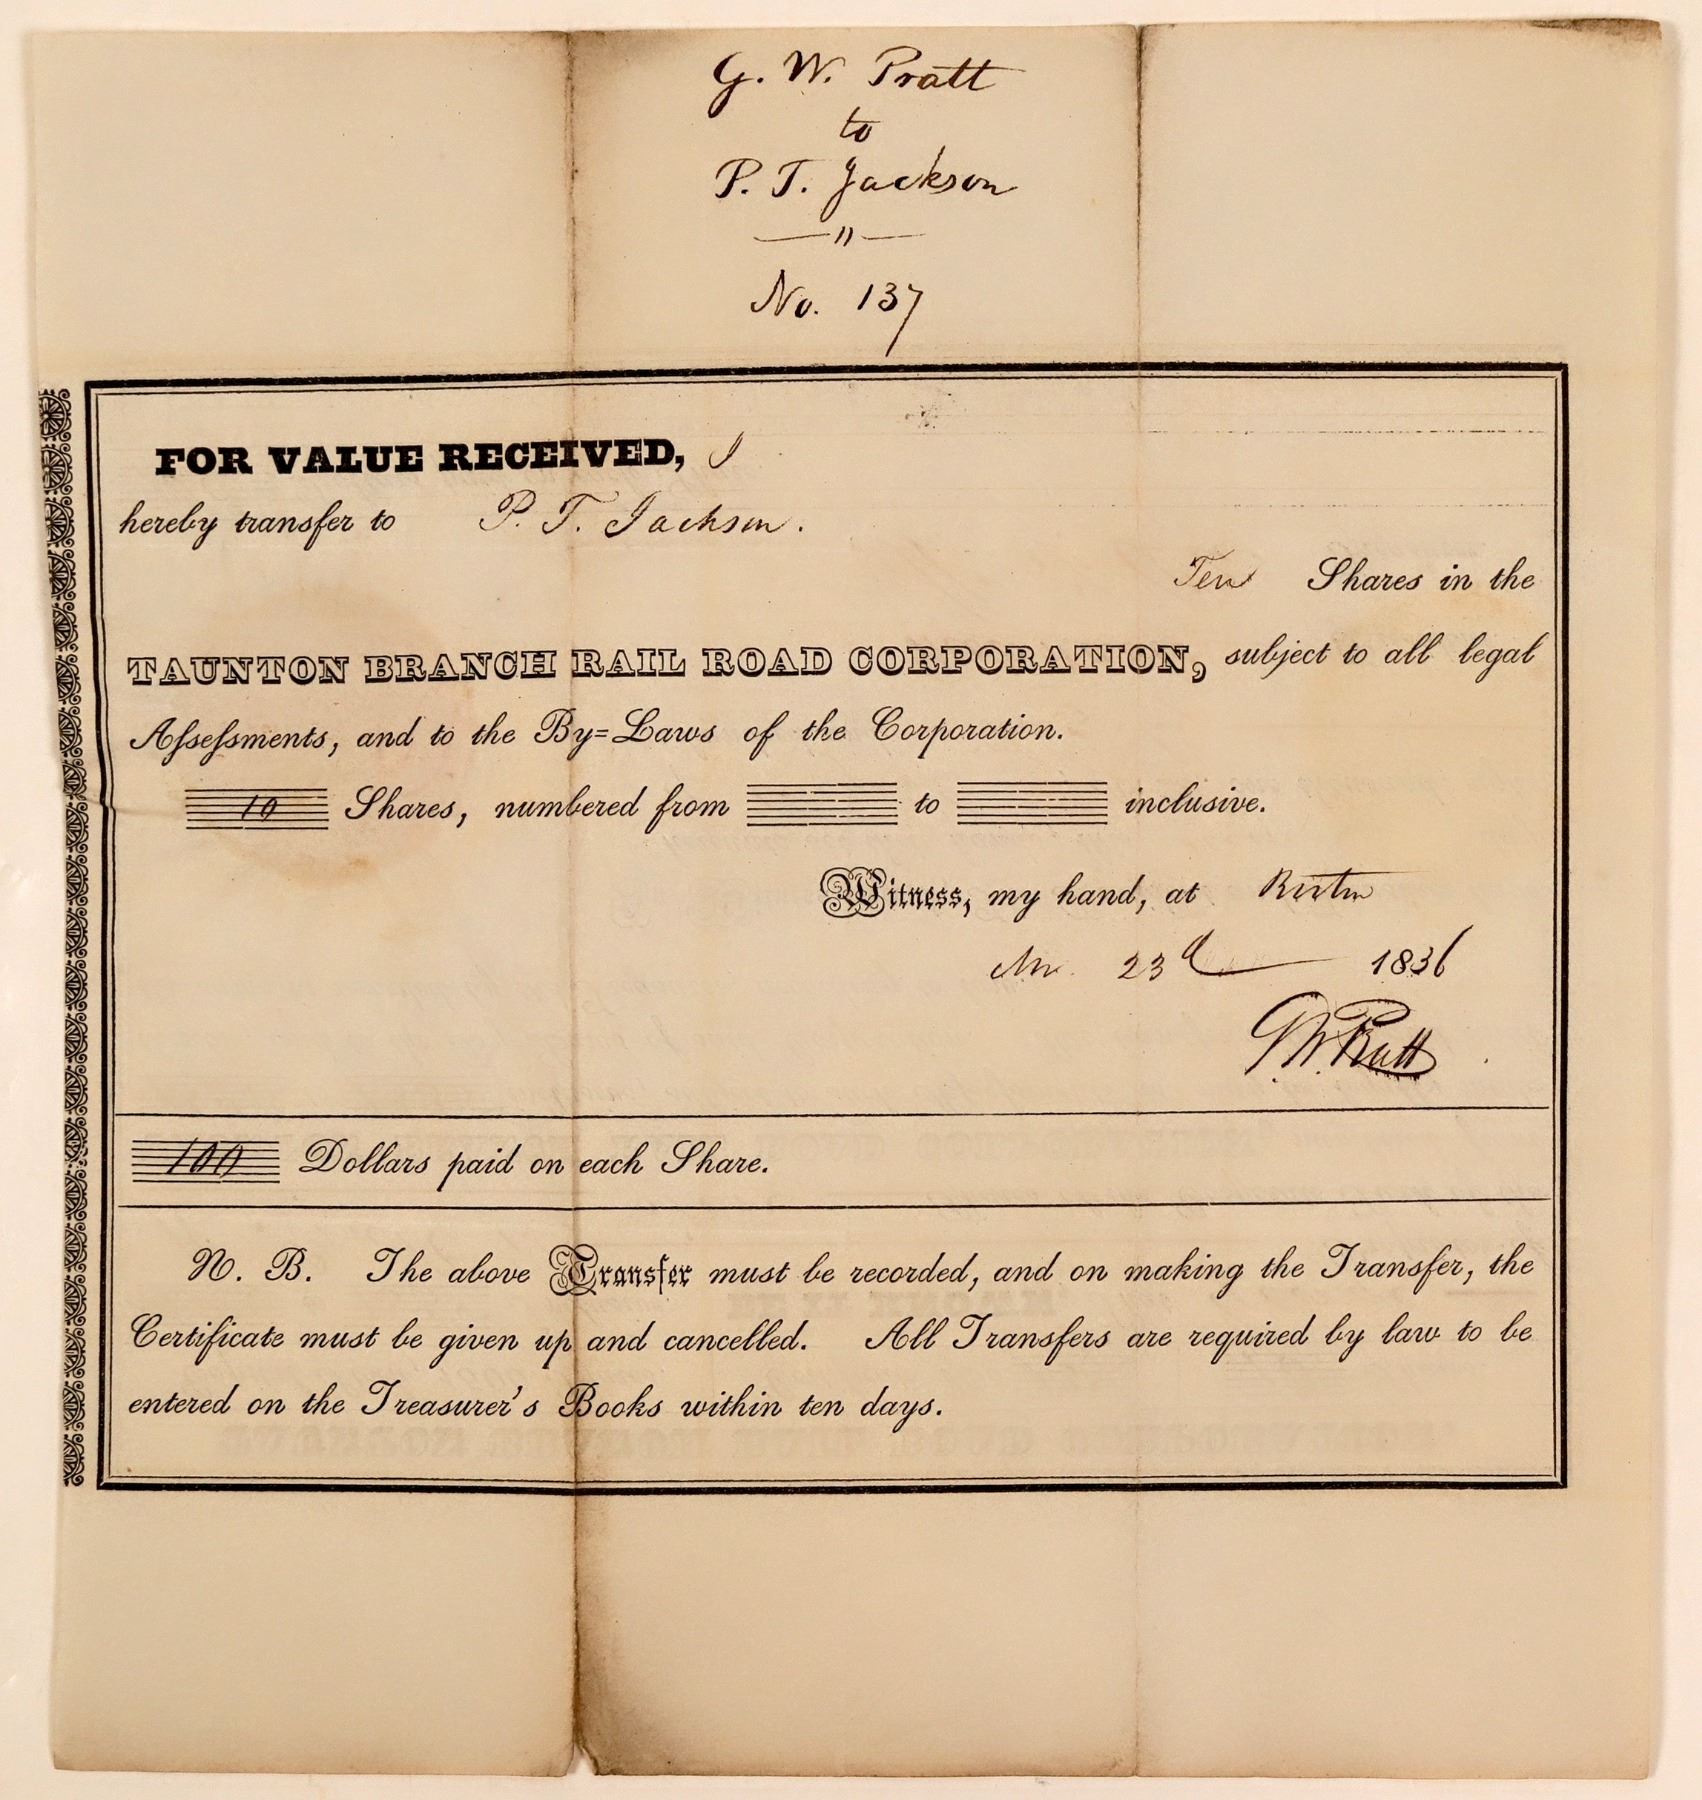 G. W. Pratt
to
P. T. Jackson
— " —
No. 137
FOR VALUE RECEIVED, I
hereby transfer to P. T. Jackson.
Ten Shares in the
TAUNTON BRANCH RAIL ROAD CORPORATION, subject to all legal
Aſseſsments, and to the By=Laws of the Corporation.
10 Shares, numbered from to inclusive.
Witness, my hand, at Boston
23d 1836
G. W. Pratt
100 Dollars paid on each Share.
N. B. The above Transfer must be recorded, and on making the Transfer, the
Certificate must be given up and cancelled. All Transfers are required by law to be
entered on the Treasurer's Books within ten days.